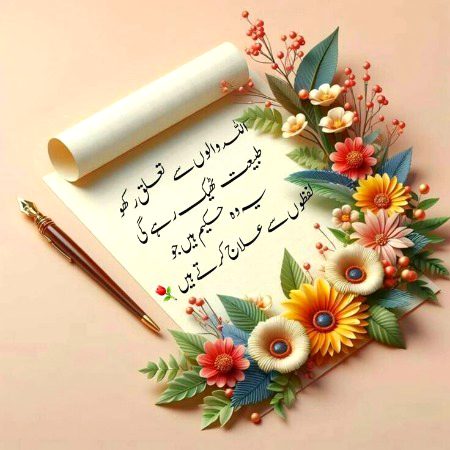 اللہ والوں سے تعلق رکھو
طبیعت ٹھیک رہے گی
یہ وہ حکیم ہیں جو
لفظوں سے علاج کرتے ہیں